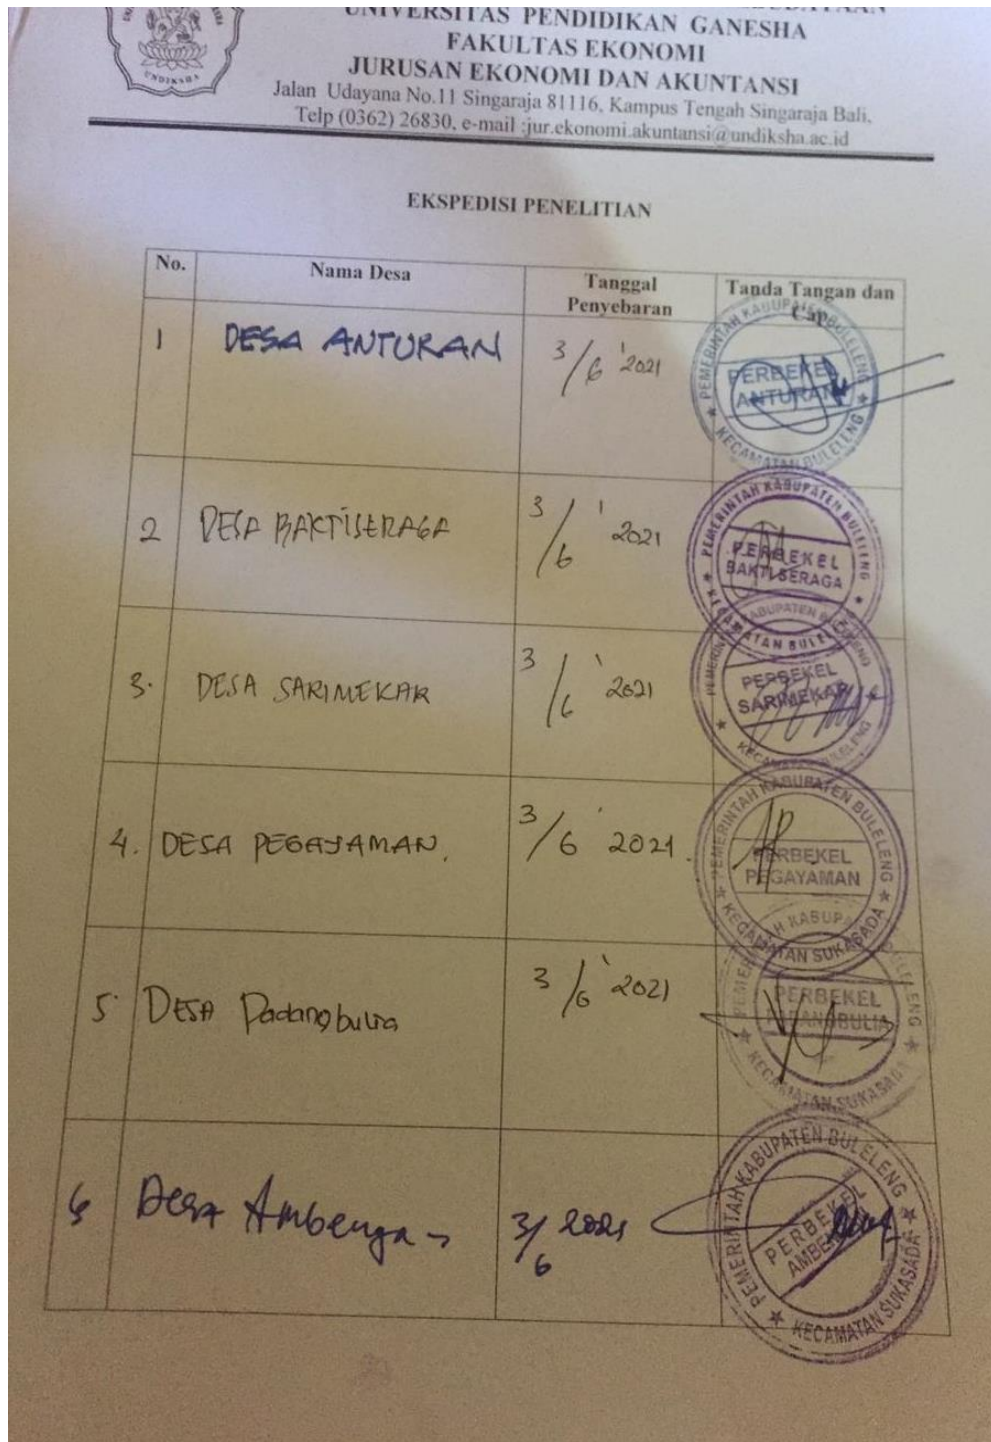 UNDIKSHA
UNIVERSITAS PENDIDIKAN GANESHA
FAKULTAS EKONOMI
JURUSAN EKONOMI DAN AKUNTANSI
Jalan Udayana No.11 Singaraja 81116, Kampus Tengah Singaraja Bali,
Telp (0362) 26830, e-mail :jur.ekonomi.akuntansi@undiksha.ac.id
EKSPEDISI PENELITIAN
No. Nama Desa Tanggal Penyebaran Tanda Tangan dan Cap
1 DESA ANTURAN 3/6 '2021
PEMERINTAH KABUPATEN BULELENG
PERBEKEL
ANTURAN
KECAMATAN BULELENG
2 DESA BAKTISERAGA 3/6 ' 2021
PEMERINTAH KABUPATEN BULELENG
PERBEKEL
BAKTI SERAGA
KECAMATAN BULELENG
3. DESA SARIMEKAR 3/6 ' 2021
PEMERINTAH KABUPATEN BULELENG
PERBEKEL
SARIMEKAR
KECAMATAN BULELENG
4. DESA PEGAYAMAN. 3/6 ' 2021.
PEMERINTAH KABUPATEN BULELENG
PERBEKEL
PEGAYAMAN
KECAMATAN SUKASADA
5. DESA Padangbulia 3/6 ' 2021
PEMERINTAH KABUPATEN BULELENG
PERBEKEL
PADANGBULIA
KECAMATAN SUKASADA
6 Desa Ambengan 3/6 2021
PEMERINTAH KABUPATEN BULELENG
PERBEKEL
KECAMATAN SUKASADA